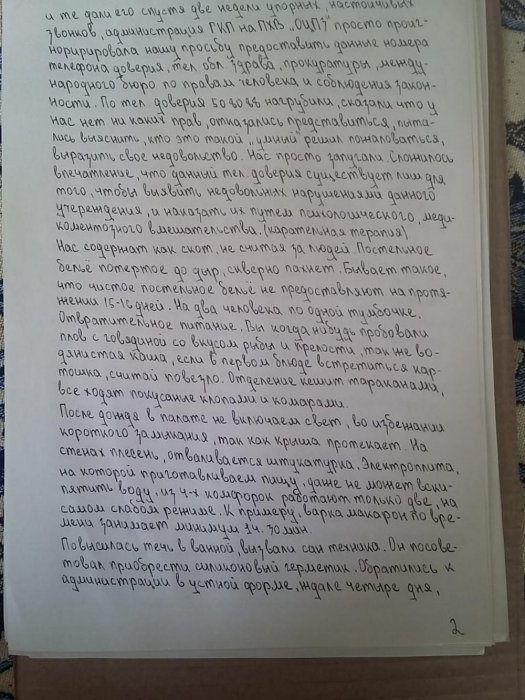 и те дали его спустя две недели упорных, настойчивых
звонков, администрация ГКП на ПХВ „ОЦПЗ" просто проиг-
норировала нашу просьбу предоставить данные номера
телефона доверия, тел. обл. здрава, прокуратуры, между-
народного бюро по правам человека и соблюдения закон-
ности. По тел. доверия 50 80 88 нагрубили, сказали что у
нас нет ни каких прав, отказались представиться, пыта-
лись выяснить, кто это такой „умный" решил пожаловаться,
выразить свое недовольство. Нас просто запугали. Сложилось
впечатление, что данный тел. доверия существует лиш для
того, чтобы выявить недовольных нарушениями данного
учереждения, и наказать их путем психологического, меди-
коментозного вмешательства. (карательная терапия)
Нас содержат как скот, не считая за людей. Постельное
бельё потертое до дыр, скверно пахнет. Бывает такое,
что чистое постельное бельё не предоставляют на протя-
жении 15-16 дней. На два человека по одной тумбочке.
Отвратительное питание. Вы когда нибудь пробовали
плов с говядиной со вкусом рыбы и прелости, так же во-
дянистая каша, если в первом блюде встретиться кар-
тошка, считай повезло. Отделение кешит тараканами,
все ходят покусаные клопами и комарами.
После дождя в палате не включаем свет, во избежании
короткого замыкания, так как крыша протекает. На
стенах плесень, отваливается штукатурка. Электроплита,
на которой приготавливаем пищу, даже не может вски-
пятить воду, из 4-х комфорок работают только две, на
самом слабом режиме. К примеру, варка макарон по вре-
мени занимает минимум 1ч. 30 мин.
Повысилась течь в ванной, визвали сан техника. Он посове-
товал приобрести силиконовый герметик. Обратились к
администрации в устной форме, ждале четыре дня,
2